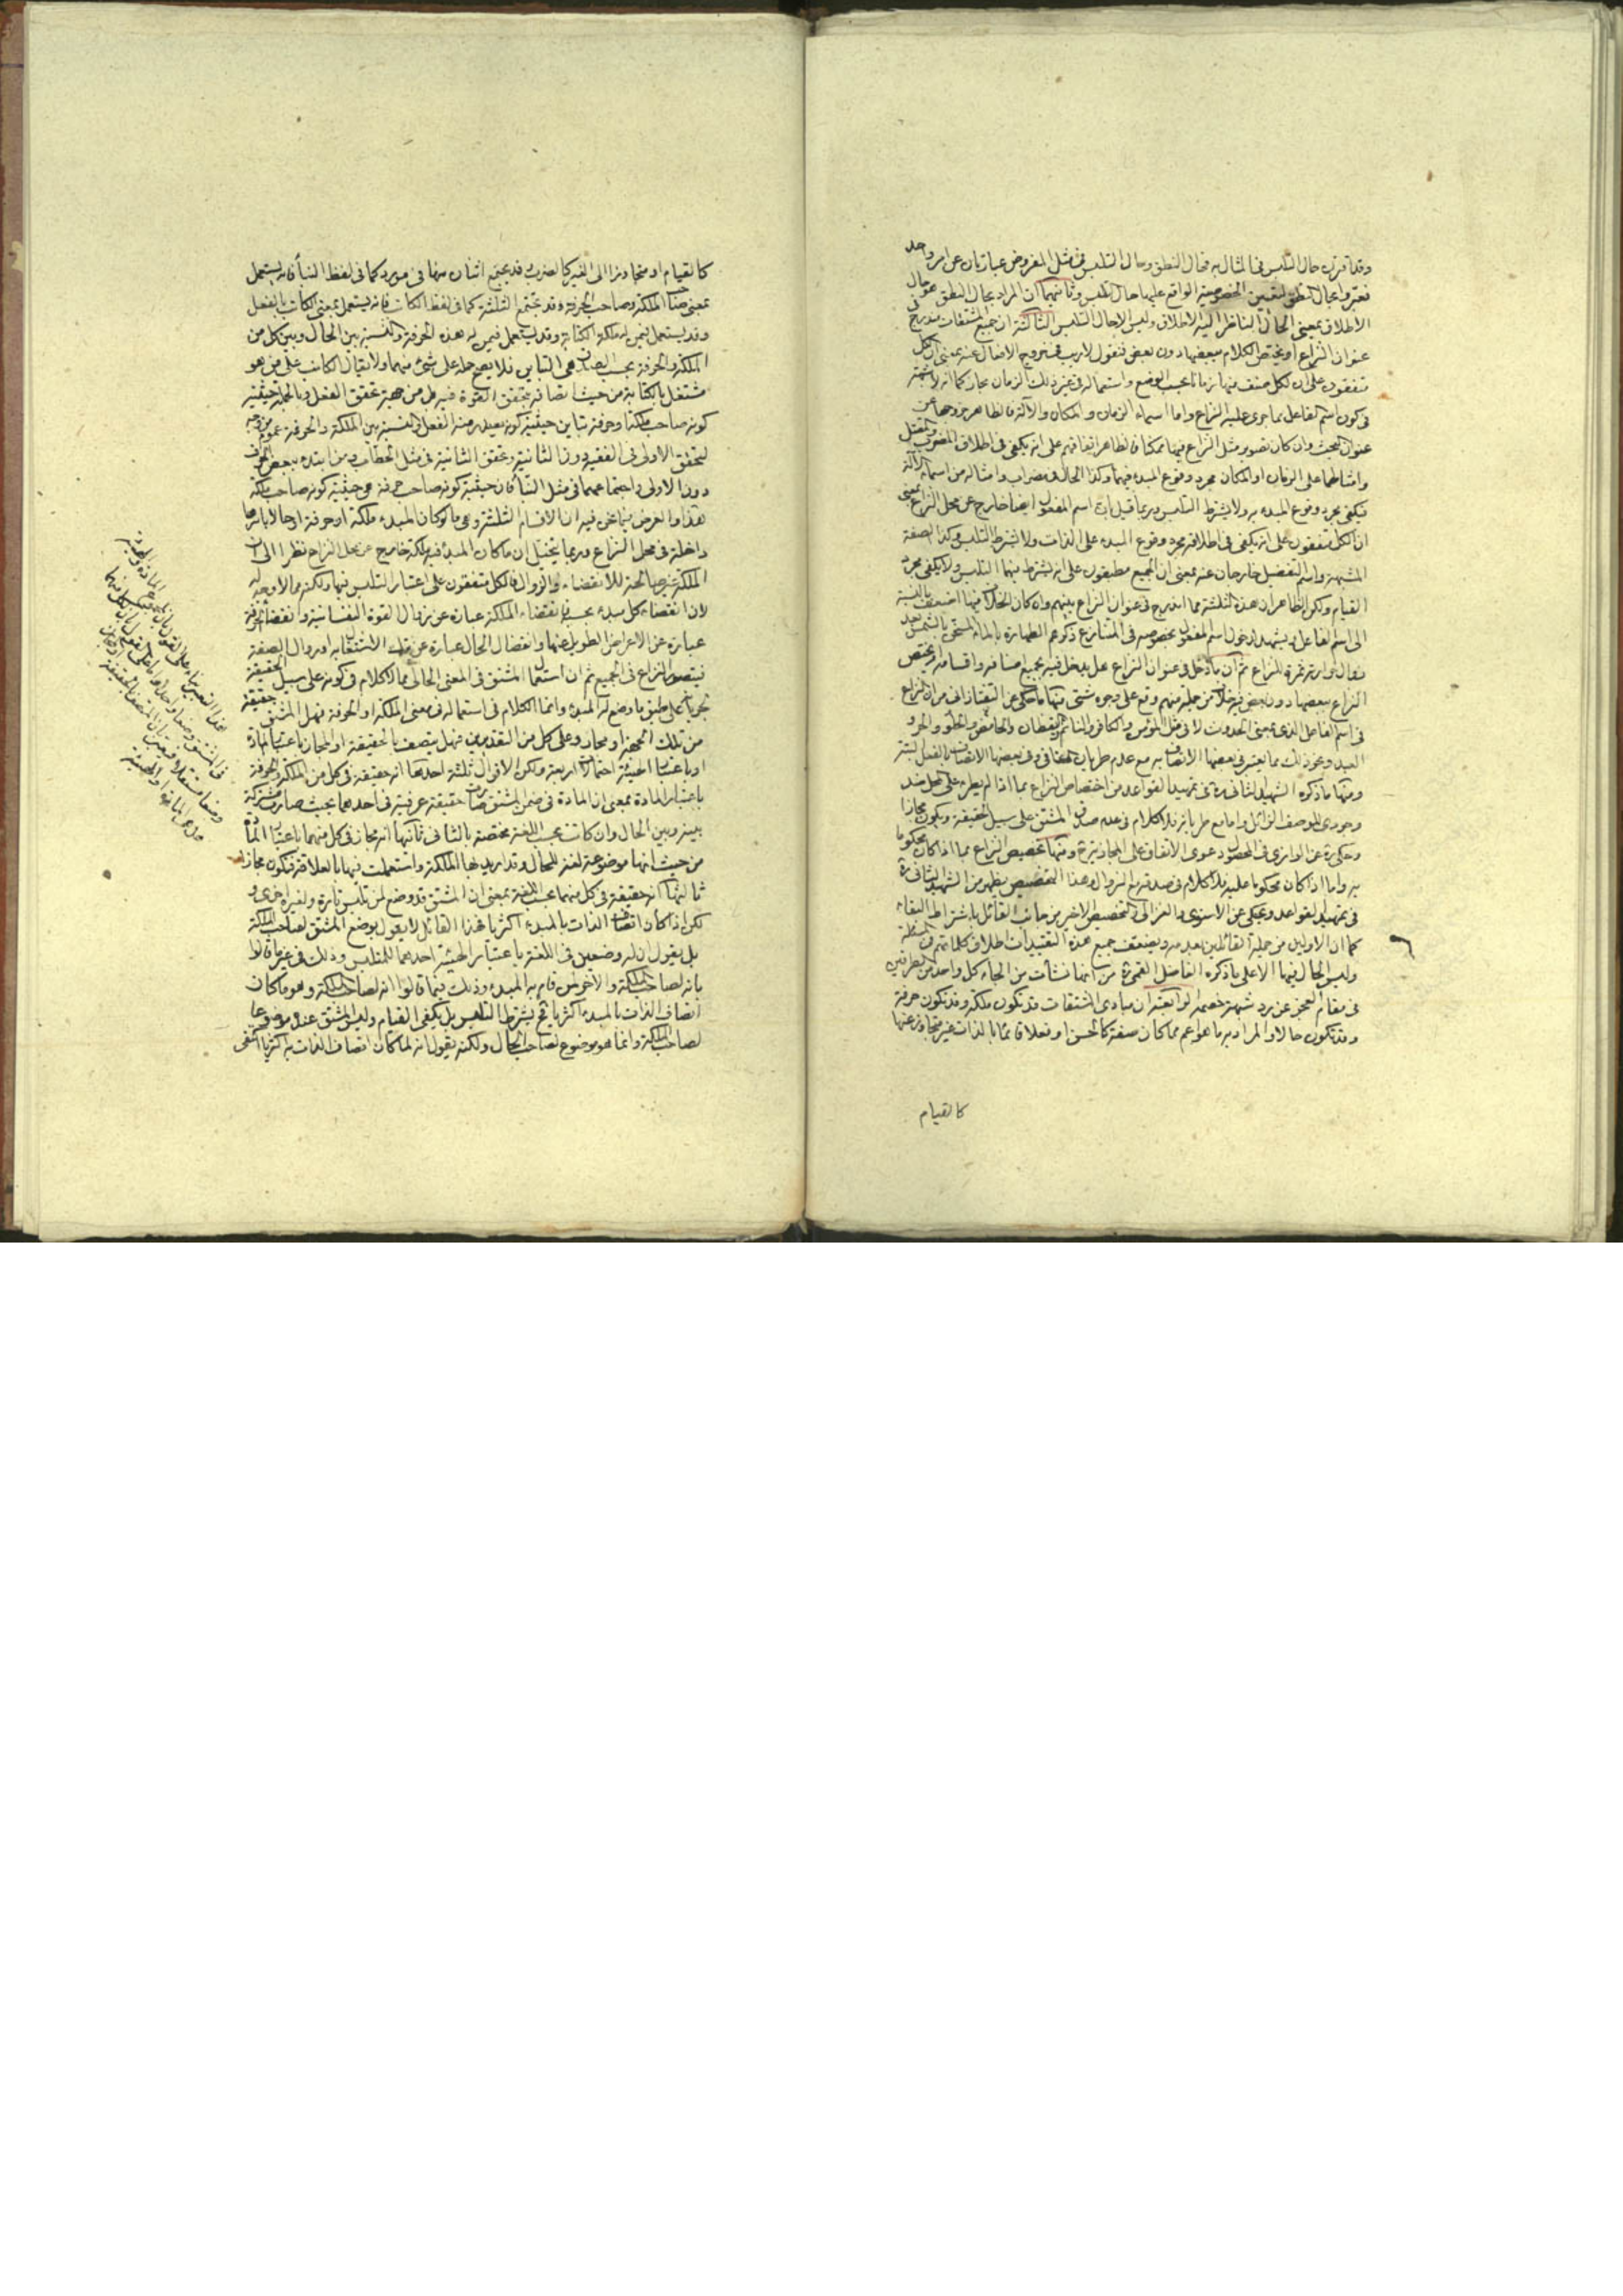 وقد اقترن حال التلبس في المثال به فحال النطق وحال التلبس في مثل المفروض عبارتان عن امر واحد
فعبروا بحال النطق لتعيين الخصوصية الواقع عليها حال التلبس وثانيهما ان المراد بحال النطق هو حال
الاطلاق بمعنى الحال الناظر اليه الاطلاق وليس الا حال التلبس الثالثة ان جميع المشتقات مندرج في
عنوان النزاع او يختص الكلام ببعضها دون بعض فنقول لا ريب في خروج الافعال عنه بمعنى ان الكل
متفقون على ان لكل صنف منها زمانا بحسب الوضع واستعماله في غير ذلك الزمان مجاز كما انه لا شبهة
في كون اسم الفاعل مما جرى عليه النزاع واما اسماء الزمان والمكان والآلة فالظاهر خروجها عن
عنوان البحث وان كان تصوير مثل النزاع فيها ممكنا فالظاهر اتفاقهم على انه يكفي في اطلاق المضرب والمقتل
وامثالهما على الزمان او المكان مجرد وقوع المبدء فيهما وكذا الحال في مضراب وامثاله من اسماء الآلة
فيكفي مجرد وقوع المبدء به ولا يشترط التلبس وربما قيل ان اسم المفعول ايضا خارج عن محل النزاع بمعنى
ان الكل متفقون على انه يكفي في اطلاقه مجرد وقوع المبدء على الذات ولا يشترط التلبس وكذا الصفة
المشبهة واسم التفضيل خارجان عنه بمعنى ان الجميع مطبقون على انه يشترط فيهما التلبس ولا يكفي مجرد
القيام ولكن الظاهر ان هذه الثلثة مما اندرج في عنوان النزاع بينهم وان كان الخلاف فيها اضعف بالنسبة
الى اسم الفاعل ويشهد لدخول اسم المفعول بخصوصه في المتنازع ذكرهم الطهارة بالماء المسخن بالشمس بعد
زوال حرارته ثمرة للنزاع ثم ان ما دخل في عنوان النزاع هل يدخل فيه بجميع اصنافه واقسامه او يختص
النزاع ببعضها دون بعض فيه خلاف من جملة منهم وقع على وجوه شتى منها ما حكى عن التفتازاني من ان النزاع
في اسم الفاعل الذي بمعنى الحدوث لا في مثل المؤمن والكافر والنائم واليقظان والحامض والحلو والحر و
العبد ونحو ذلك مما يعتبر في بعضها الاتصاف به مع عدم طريان المنافي وفي بعضها الاتصاف بالفعل البتة
ومنها ما ذكره الشهيد الثاني ره في تمهيد القواعد من اختصاص النزاع بما اذا لم يطرء على المحل ضد
وجودي للوصف الزائل واما مع طريانه فلا كلام في عدم صدق المشتق على سبيل الحقيقة ويكون مجازا
وحكى ره عن الرازي في المحصول دعوى الاتفاق على المجازية ومنها تخصيص النزاع بما اذا كان محكوما
به واما اذا كان محكوما عليه فلا كلام في صدقه مع الزوال وهذا التخصيص يظهر من الشهيد الثاني ره
في تمهيد القواعد ويحكى عن الاسنوي والغزالي والتخصيص الاخير من جانب القائل باشتراط البقاء
كما ان الاولين من جملة القائلين بعدمه ويضعف جميع هذه التقييدات اطلاق كلماتهم في المسئلة
وليس الحال فيها الا على ما ذكره الفاضل القمي ره من انها نشأت من الجاء كل واحد من الطرفين
في مقام العجز عن رد شبهة خصمه الرابعة ان مبادي المشتقات قد تكون ملكة وقد تكون حرفة
وقد تكون حالا والمراد به ما هو اعم مما كان صفة كالحسن او فعلا قائما بالذات غير متجاوز عنها
كالقيام
كالقيام او متجاوزا الى الغير كالضرب وقد يجتمع اثنان منها في مورد كما في لفظ البناء فانه يستعمل
بمعنى صاحب الملكة وصاحب الحرفة وقد يجتمع الثلثة كما في لفظ الكاتب فانه يستعمل بمعنى الكاتب بالفعل
وقد يستعمل فيمن له ملكة الكتابة وقد يستعمل فيمن له هذه الحرفة والنسبة بين الحال وبين كل من
الملكة والحرفة بحسب الصدق هي التباين فلا يصح حمله على شيء منهما ولا يقال الكاتب على من هو
مشتغل بالكتابة من حيث اتصافه بتحقق القوة فيه بل من جهة تحقق الفعل وبالجملة حيثية
كونه صاحب ملكة او حرفة تباين حيثية كونه يصدر منه الفعل والنسبة بين الملكة والحرفة عموم من وجه
لتحقق الاولى في الفقيه دون الثانية وتحقق الثانية في مثل الحطاب ومن ابتدء ببعض الحرف
دون الاولى واجتماعهما في مثل البناء فان حيثية كونه صاحب حرفة هي حيثية كونه صاحب ملكة
هذا والغرض فيما نحن فيه ان الاقسام الثلثة وهي ما لو كان المبدء ملكة او حرفة او حالا باسرها
داخلة في محل النزاع وربما يتخيل ان ما كان المبدء فيه ملكة خارج عن محل النزاع نظرا الى ان
الملكة غير صالحة للانقضاء والزوال فالكل متفقون على اعتبار التلبس فيها ولكنه مما لا وجه له
لان انقضاء كل مبدء بحسبه فانقضاء الملكة عبارة عن زوال القوة النفسانية وانقضاء الحرفة
عبارة عن الاعراض الطويل عنها وانقضاء الحال عبارة عن الاشتغال به او زوال الصفة
فيتصور النزاع في الجميع ثم ان استعمال المشتق في المعنى الحالي مما لا كلام في كونه على سبيل الحقيقة
لجريانه على طبق ما وضع له المبدء وانما الكلام في استعماله في معنى الملكة او الحرفة فهل المشتق حقيقة
من تلك الجهة او مجاز وعلى كل من التقديرين فهل يتصف بالحقيقة او المجاز باعتبار المادة
او باعتبار الهيئة احتمالات اربعة ولكن الاقوال ثلثة احدها انه حقيقة في كل من الملكة والحرفة
باعتبار المادة بمعنى ان المادة في ضمن المشتق صارت حقيقة عرفية في احدهما بحيث صارت مشتركة
بينه وبين الحال وان كانت بحسب اللغة مختصة بالثاني ثانيها انه مجاز في كل منهما باعتبار المادة
من حيث انها موضوعة لغة للحال وقد اريد بها الملكة واستعملت فيها بالعلاقة فتكون مجازا
ثالثها انه حقيقة في كل منهما بحسب اللغة بمعنى ان المشتق قد وضع لمن تلبس تارة ولغيره اخرى و
لكن اذا كان اتصاف الذات بالمبدء اكثريا فهذا القائل لا يقول بوضع المشتق لصاحب الملكة
بل يقول ان له وضعين في اللغة باعتبار الهيئة احدهما للمتلبس وذلك في غير ما قالوا
بانه لصاحب الملكة والاخر لمن قام به المبدء وذلك فيما قالوا انه لصاحب الملكة وهو ما كان
اتصاف الذات بالمبدء اكثريا فح يشترط التلبس بل يكفي القيام وليس المشتق عنده موضوعا
لصاحب الملكة وانما هو موضوع لصاحب الحال ولكنه يقول انه لما كان اتصاف الذات به اكثريا اكتفى